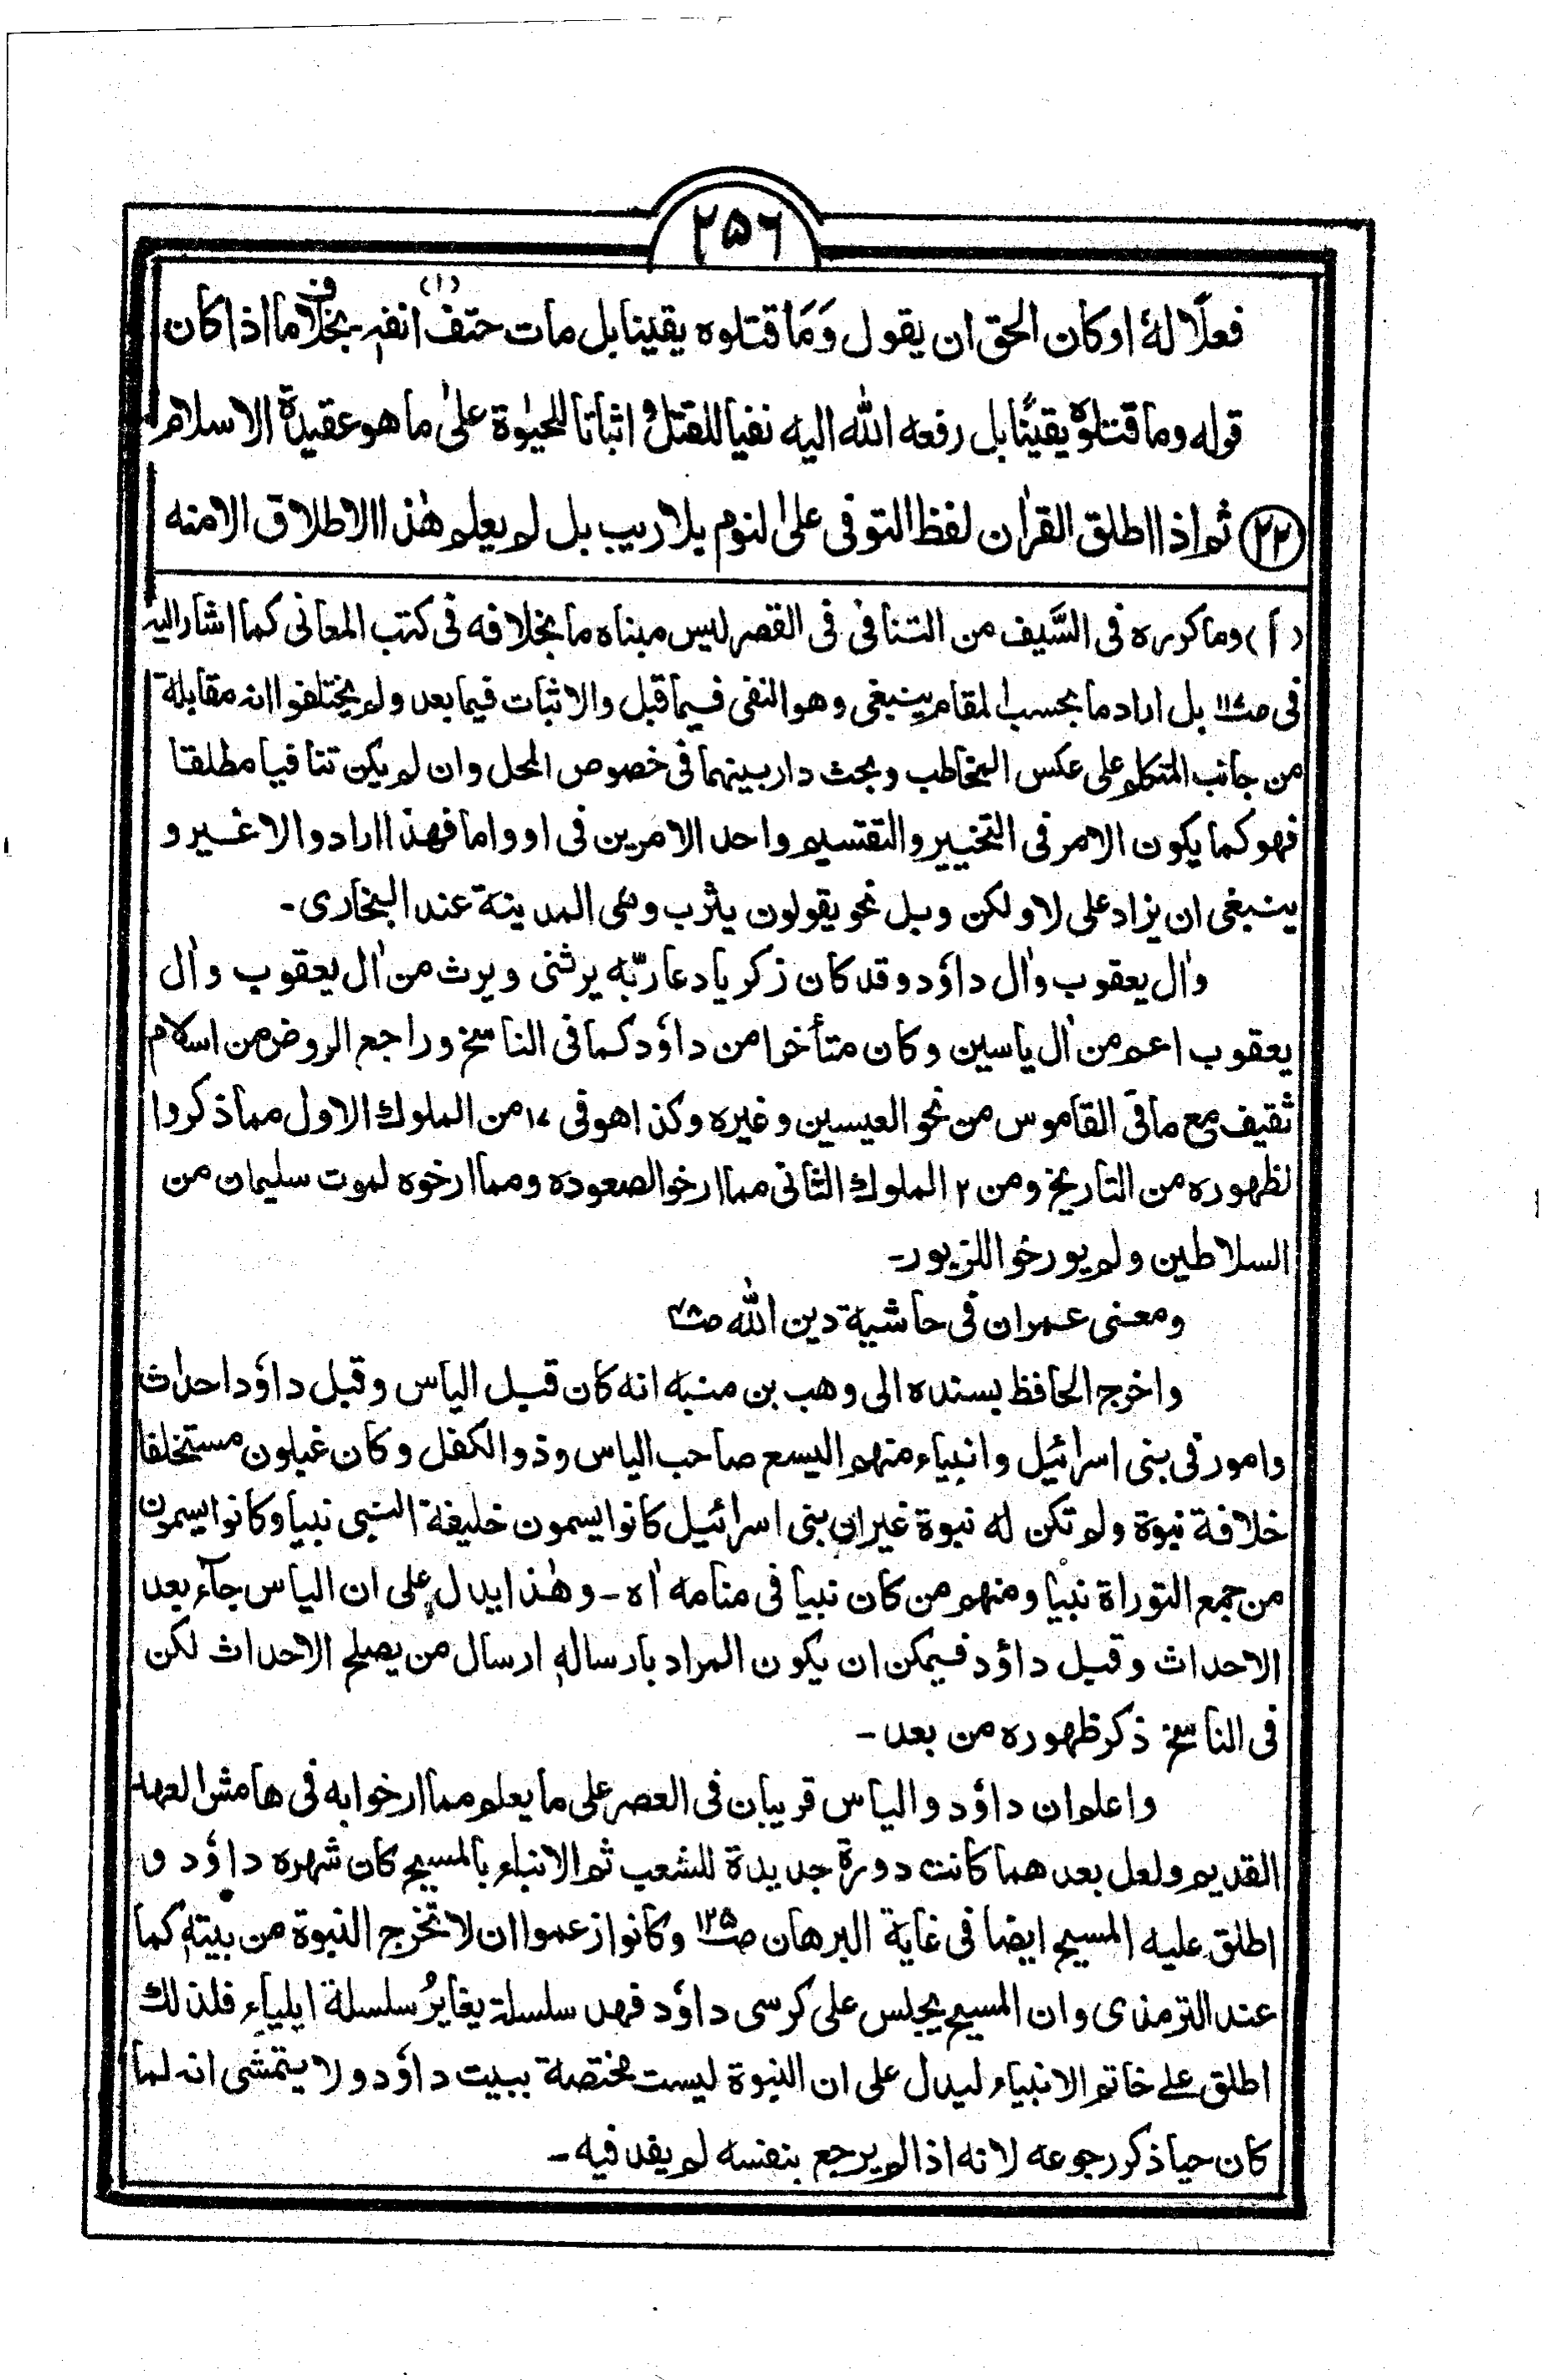 ۲۵۶
فعلًا لهٗ او كان الحق ان يقول وَمَا قتلوه يقينا بل مات حتف (۱) انفہٖ بخلاف ما اذا كان
قولہ وما قتلوہ يقينًا بل رفعه اللّٰه اليه نفيا للقتل و اثباتا للحيٰوة علىٰ ما هو عقيدة الاسلام
(۲۲) ثم اذا اطلق القرأن لفظ التوفى على النوم بلا ريب بل لم يعلم هٰذا الاطلاق الا منه
(۱) وما كرره فى السَّيف من التنافى فى القصر ليس مبناه ما بخلافه فى كتب المعانى كما اشار اليه
فى ص۱۱۷ بل اراد ما بحسب المقام ينبغى وهو النفى فيما قبل والاثبات فيما بعد ولم يختلفوا انہ مقابلة
من جانب المتكلم على عكس المخاطب وبحث دار بينهما فى خصوص المحل وان لم يكن تنافيا مطلقا
فهو كما يكون الامر فى التخيير والتقسيم واحد الامرين فى او واما فهذا ارادوا لا غير و
ينبغى ان يزاد على لا ولكن وبل نحو يقولون يثرب وهى المدينة عند البخارى۔
واٰل يعقوب واٰل داؤد وقد كان زكريا دعا ربّه يرثنى ويرث من اٰل يعقوب واٰل
يعقوب اعم من اٰل ياسين وكان متأخرا من داؤد كما فى الناسخ وراجع الروض من اسلام
ثقيف مع ما فى القاموس من نحو العيسين وغيره وكذا هو فى ۱۷ من الملوك الاول مما ذكروا
لظهوره من التاريخ ومن ۲ الملوك الثانى مما ارخوا لصعوده ومما ارخوه لموت سليمان من
السلاطين ولم يورخوا للزبور۔
ومعنى عمران فى حاشية دين اللّٰه
واخرج الحافظ بسنده الى وهب بن منبه انه كان قبل الياس وقبل داؤد احداث
وامور فى بنى اسرائيل وانبياء منهم اليسع صاحب الياس وذو الكفل وكان غيلون مستخلفا
خلافة نبوة ولم تكن له نبوة غير ان بنى اسرائيل كانوا يسمون خليفة النبى نبيا وكانوا يسمون
من جمع التوراة نبيا ومنهم من كان نبيا فى منامه اٰه ۔ وهٰذا يدل على ان الياس جآء بعد
الاحداث وقبل داؤد فيمكن ان يكون المراد بارسالہ ارسال من يصلح الاحداث لكن
فى الناسخ ذكر ظهوره من بعد ۔
واعلم ان داؤد والياس قريبان فى العصر على ما يعلم مما ارخوا به فى هامش العهد
القديم ولعل بعد هما كانت دورة جديدة للشعب ثم الانباء بالمسيح كان شهره داؤد و
اطلق عليه المسيح ايضا فى غاية البرهان ص۱۲۵ وكانوا زعموا ان لا تخرج النبوة من بيتہ كما
عند الترمذى وان المسيح يجلس على كرسى داؤد فهد سلسلة يغايرُ سلسلة ايلياء فلذلك
اطلق علے خاتم الانبياء ليدل على ان النبوة ليست مختصة ببيت داؤد ولا يتمشى انہ لما
كان حيا ذكر رجوعه لانه اذا لم يرجع بنفسه لم يفد فيه ۔